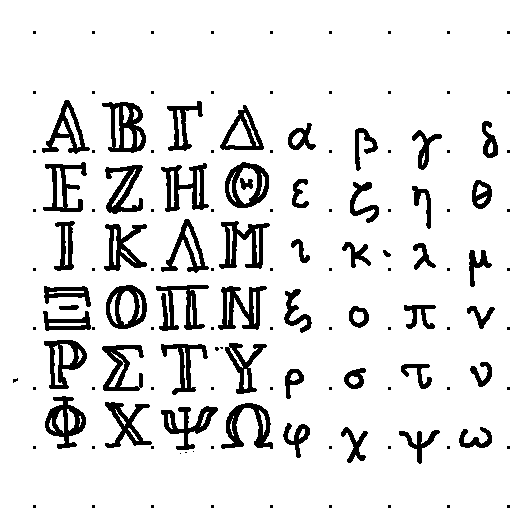 Α Β Γ Δ α β γ δ
Ε Ζ Η Θ ε ζ η θ
Ι Κ Λ Μ ι κ λ μ
Ξ Ο Π Ν ξ ο π ν
Ρ Σ Τ Υ ρ σ τ υ
Φ Χ Ψ Ω φ χ ψ ω